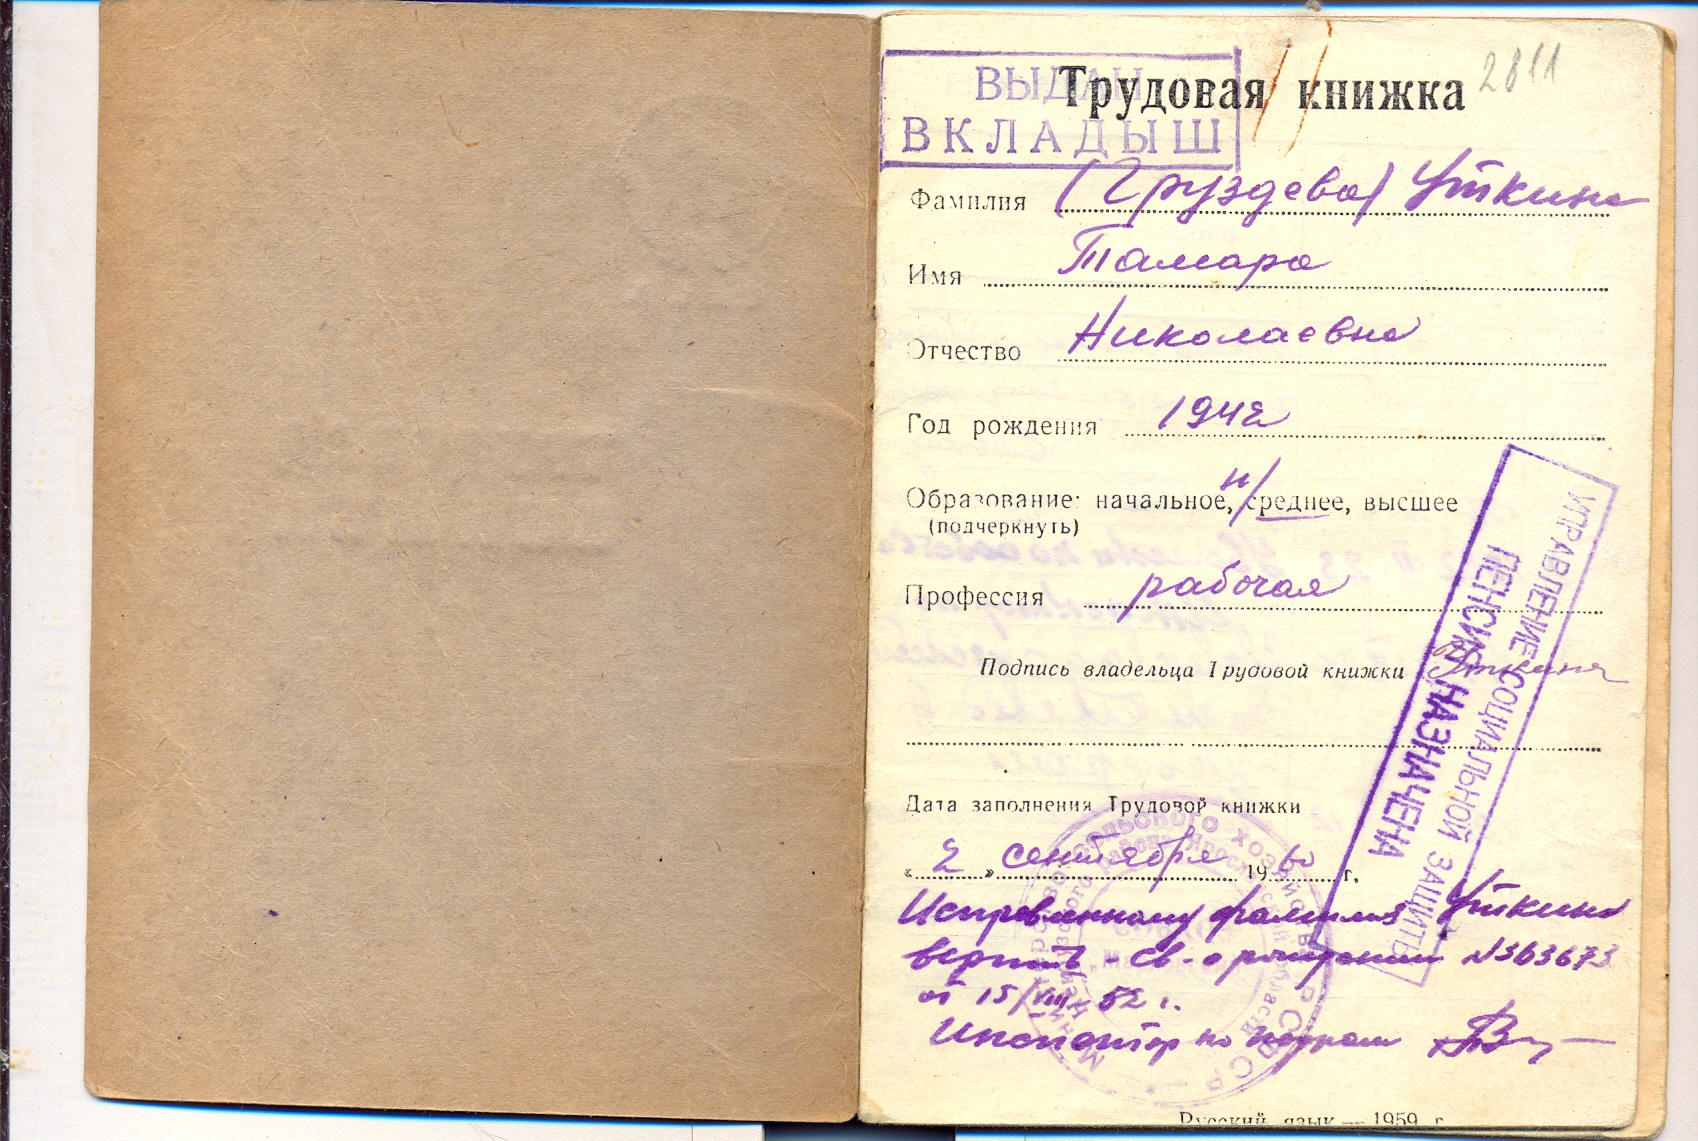 ВЫДАН
ВКЛАДЫШ
Трудовая книжка
2811
Фамилия (Груздева) Уткина
Имя Тамара
Отчество Николаевна
Год рождения 1942
Образование: начальное, н/среднее, высшее
(подчеркнуть)
Профессия рабочая
Подпись владельца Трудовой книжки Уткина
УПРАВЛЕНИЕ СОЦИАЛЬНОЙ ЗАЩИТЫ
ПЕНСИЯ НАЗНАЧЕНА
Дата заполнения Трудовой книжки
«2» сентября 1960 г.
Исправленному фамилия Уткина
верить - св-о рождении N363673
от 15/VIII 52 г.
Инспектор по кадрам
Русский язык — 1959 г.